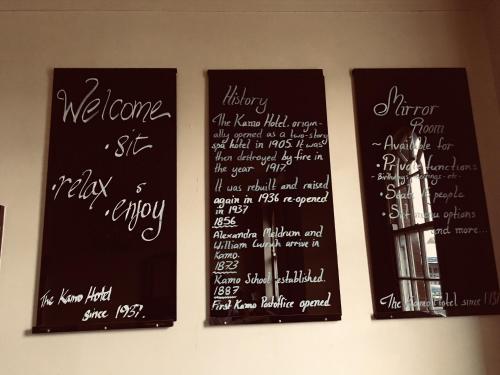 Welcome
• sit
• relax &
• enjoy
The Kamo Hotel
since 1937.
History
The Kamo Hotel, origin-
ally opened as a two-story
spa hotel in 1905. It was
then destroyed by fire in
the year 1917.
It was rebuilt and raised
again in 1936 re-opened
in 1937
1856
Alexandra Meldrum and
William arrive in
Kamo.
1873
Kamo School established.
1887
First Kamo Postoffice opened
Mirror
Room
~ Available for
• Private functions
~ Birthdays etc.
• people
• Set menu options
and more...
The Kamo Hotel since